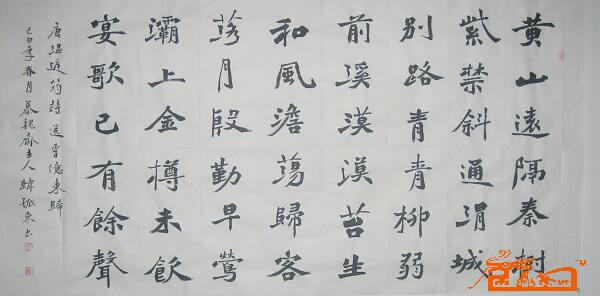 黄山遠隔秦樹
紫禁斜通渭城
別路青青柳弱
前溪漠漠苔生
和風澹蕩歸客
落月殷勤早鶯
灞上金樽未飲
宴歌已有餘聲
唐温庭筠詩送李億東歸
己丑年春月慕親齋主人韓振東书